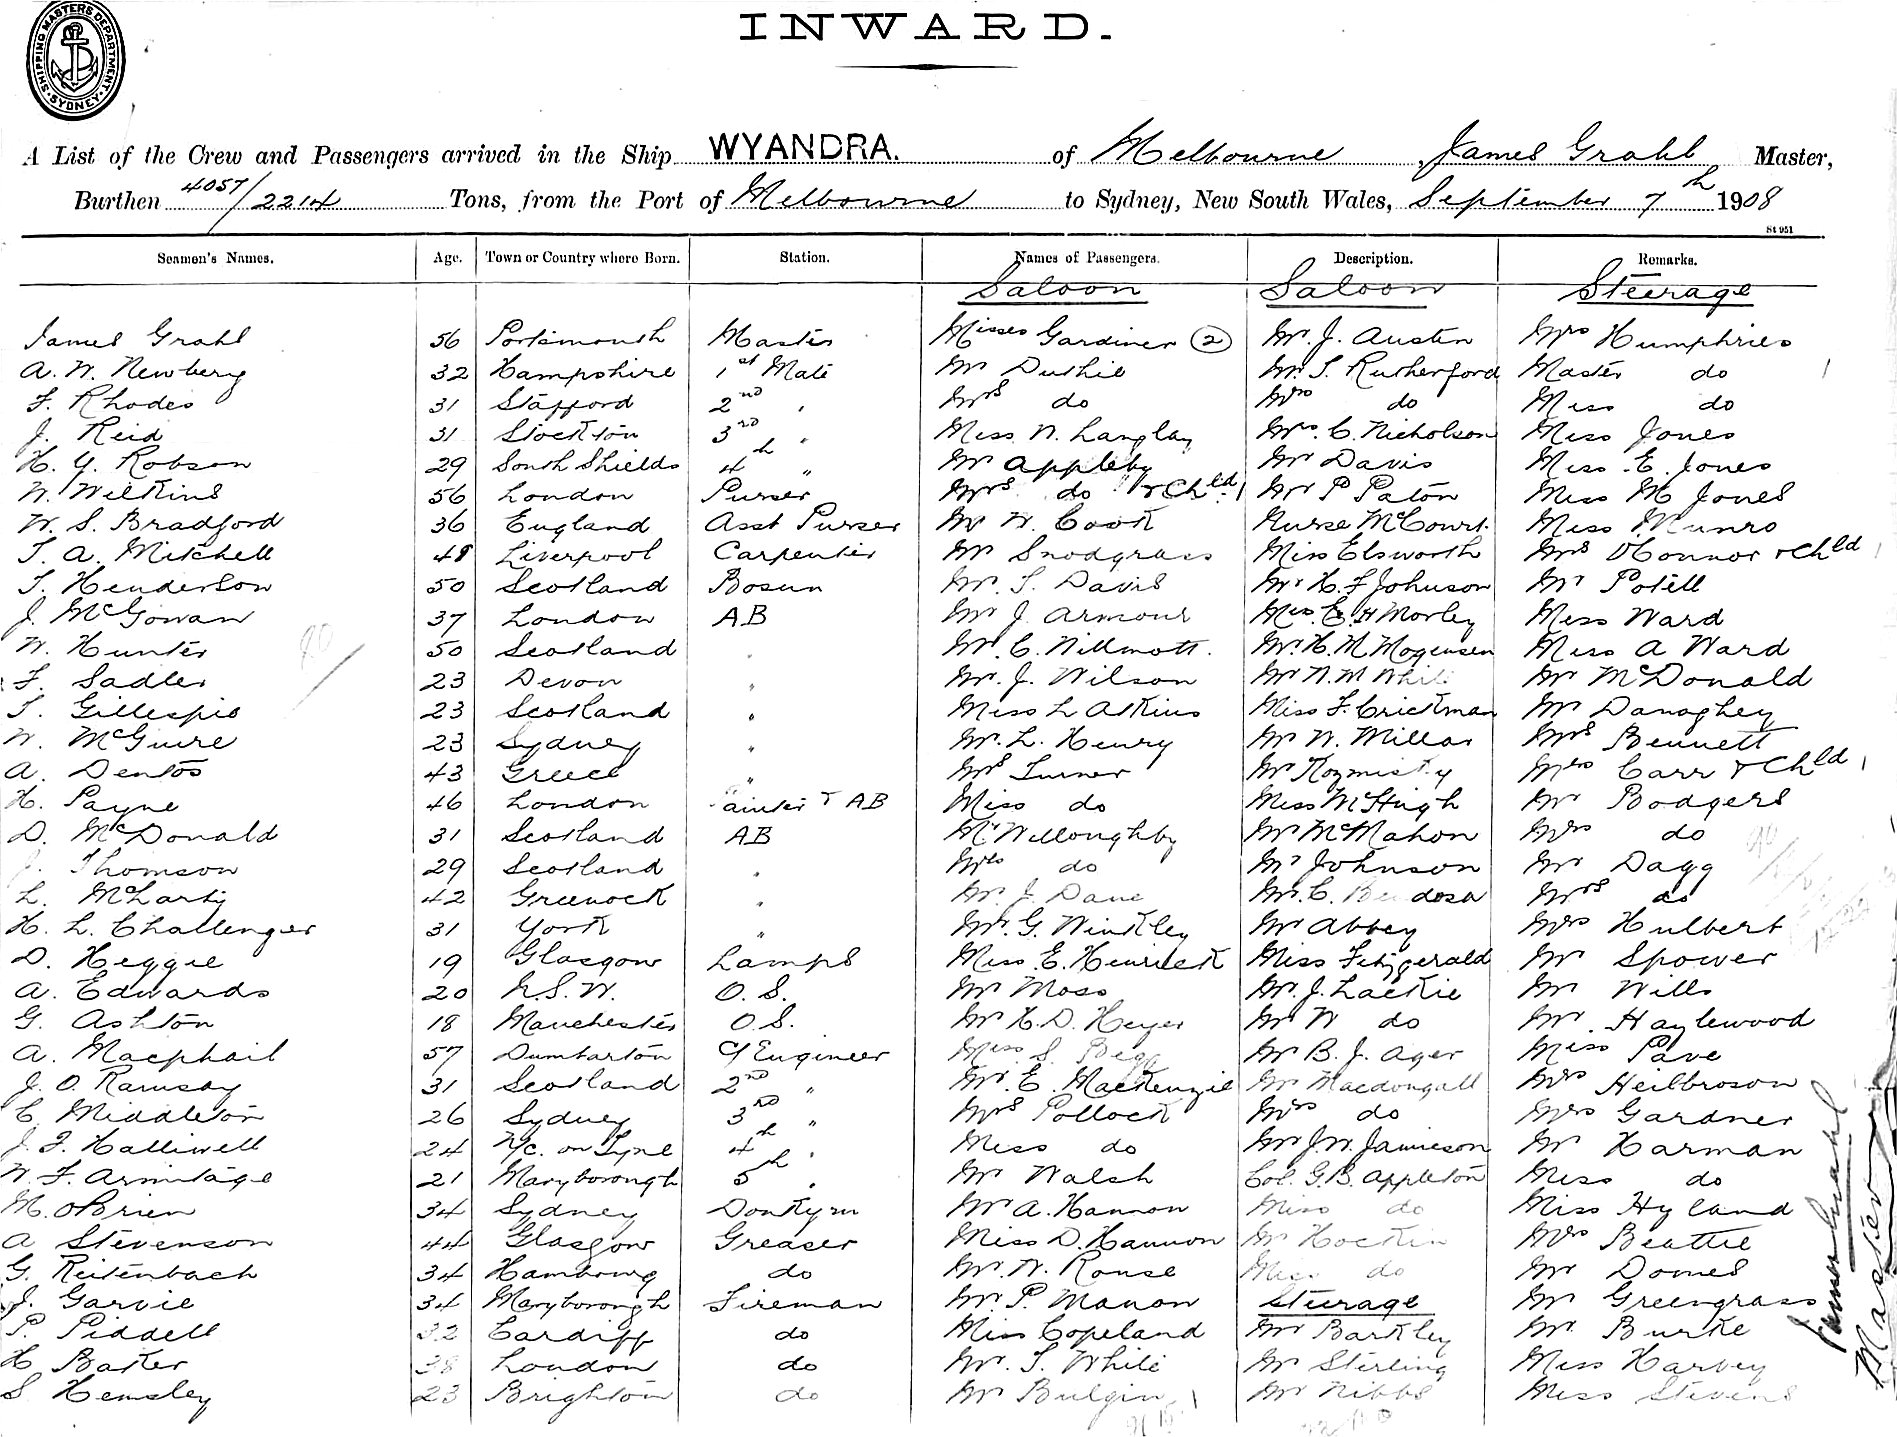 SHIPPING MASTERS DEPARTMENT. SYDNEY.
INWARD.
A List of the Crew and Passengers arrived in the Ship WYANDRA. of Melbourne James Grahl Master,
Burthen 4057/2214 Tons, from the Port of Melbourne to Sydney, New South Wales, September 7th 1908
St 951
Seamen's Names. Age. Town or Country where Born. Station. Names of Passengers. Description. Remarks.
Saloon Saloon Steerage
James Grahl 56 Portsmouth Master Misses Gardiner (2) Mr. J. Austen Mrs Humphries
A. W. Newbery 32 Hampshire 1st Mate Mr Duthie Mr. S. Rutherford Master do
F. Rhodes 31 Stafford 2nd " Mrs do Mrs do Miss do
J. Reid 31 Stockton 3rd " Miss N. Langlay Mrs. C. Nicholson Miss Jones
H. Y. Robson 29 South Shields 4th " Mr Appleby Mr Davis Miss E. Jones
W. Wilkins 56 London Purser Mrs do & Chld 1 Mr P Paton Miss M Jones
W. S. Bradford 36 England Asst Purser Mr W. Cook Nurse McCourt. Miss Munro
T. A. Mitchell 48 Liverpool Carpenter Mr Snodgrass Miss Elsworth Mrs O'Connor & Chld 1
T. Henderson 50 Scotland Bosun Mr. S. Davis Mr H. F Johnson Mr Potell
J. McGowan 37 London AB Mr J. Armour Miss E. H Morley Miss Ward
W. Hunter 50 Scotland " Mr. C. Willmott. Mr. H. M Mogensen Miss A Ward
F. Sadler 23 Devon " Mr. J. Wilson Mr W. M White Mr McDonald
T. Gillespie 23 Scotland " Miss L Atkins Miss F. Crickman Mr Danaghey
W. McGuire 23 Sydney " Mr. L. Henry Mr W. Millar Mrs Bennett
A. Dentos 43 Greece " Mrs Turner Mr Mrs Carr & Chld 1
H. Payne 46 London Painter & AB Miss do Miss McHugh Mr Bodgers
D. McDonald 31 Scotland AB Mr Willoughby Mr McMahon Mrs do
J. Thomson 29 Scotland " Mrs do Mr Johnson Mr Dagg
L. McLarty 42 Greenock " Mr. J. Dane Mr. C. Mrs do
H. L. Challenger 31 York " Mr. G. Winkley Mr Abbey Mrs Hulbert
D. Heggie 19 Glasgow Lamps Miss E. Henrick Miss Fitzgerald Mr Spower
A. Edwards 20 N.S.W. O.S. Mr Moss Mr. J. Lackie Mr Wills
G. Ashton 18 Manchester O.S. Mr H. D. Heyer Mr W do Mr. Haylewood
A. Macphail 57 Dumbarton C/Engineer Miss S. Begg Mr B. J. Ager Miss Pave
J. O. Ramsay 31 Scotland 2nd " Mr. E. MacKenzie Mr Macdongall Mrs Heilbroson
C. Middleton 26 Sydney 3rd " Mrs Pollock Mrs do Mrs Gardner
J. F. Halliwell 24 N/c. on Tyne 4th " Miss do Mr J. W. Jamieson Mr Harman
W. F. Armitage 21 Maryborough 5th " Mr Walsh Col. G. B. Appleton Miss do
M. O'Brien 34 Sydney Donkym Mr A. Hannon Miss do Miss Hyland
A Stevenson 44 Glasgow Greaser Miss D. Hannon Mr Hockin Mrs Beattie
G. Reitenbach 34 Hambourg do Mr. W. Rouse Miss do Mr Domes
J. Garvie 34 Maryborough Fireman Mr. P. Manon Steerage Mr Greengrass
P. Piddell 32 Cardiff do Miss Copeland Mr Barkley Mr. Burke
H Baker 38 London do Mr. S. White Mr Sterling Miss Harvey
S Hemsley 23 Brighton do Mr Bulgin Mr Nibbs Miss Stevens
James Grahl
Master